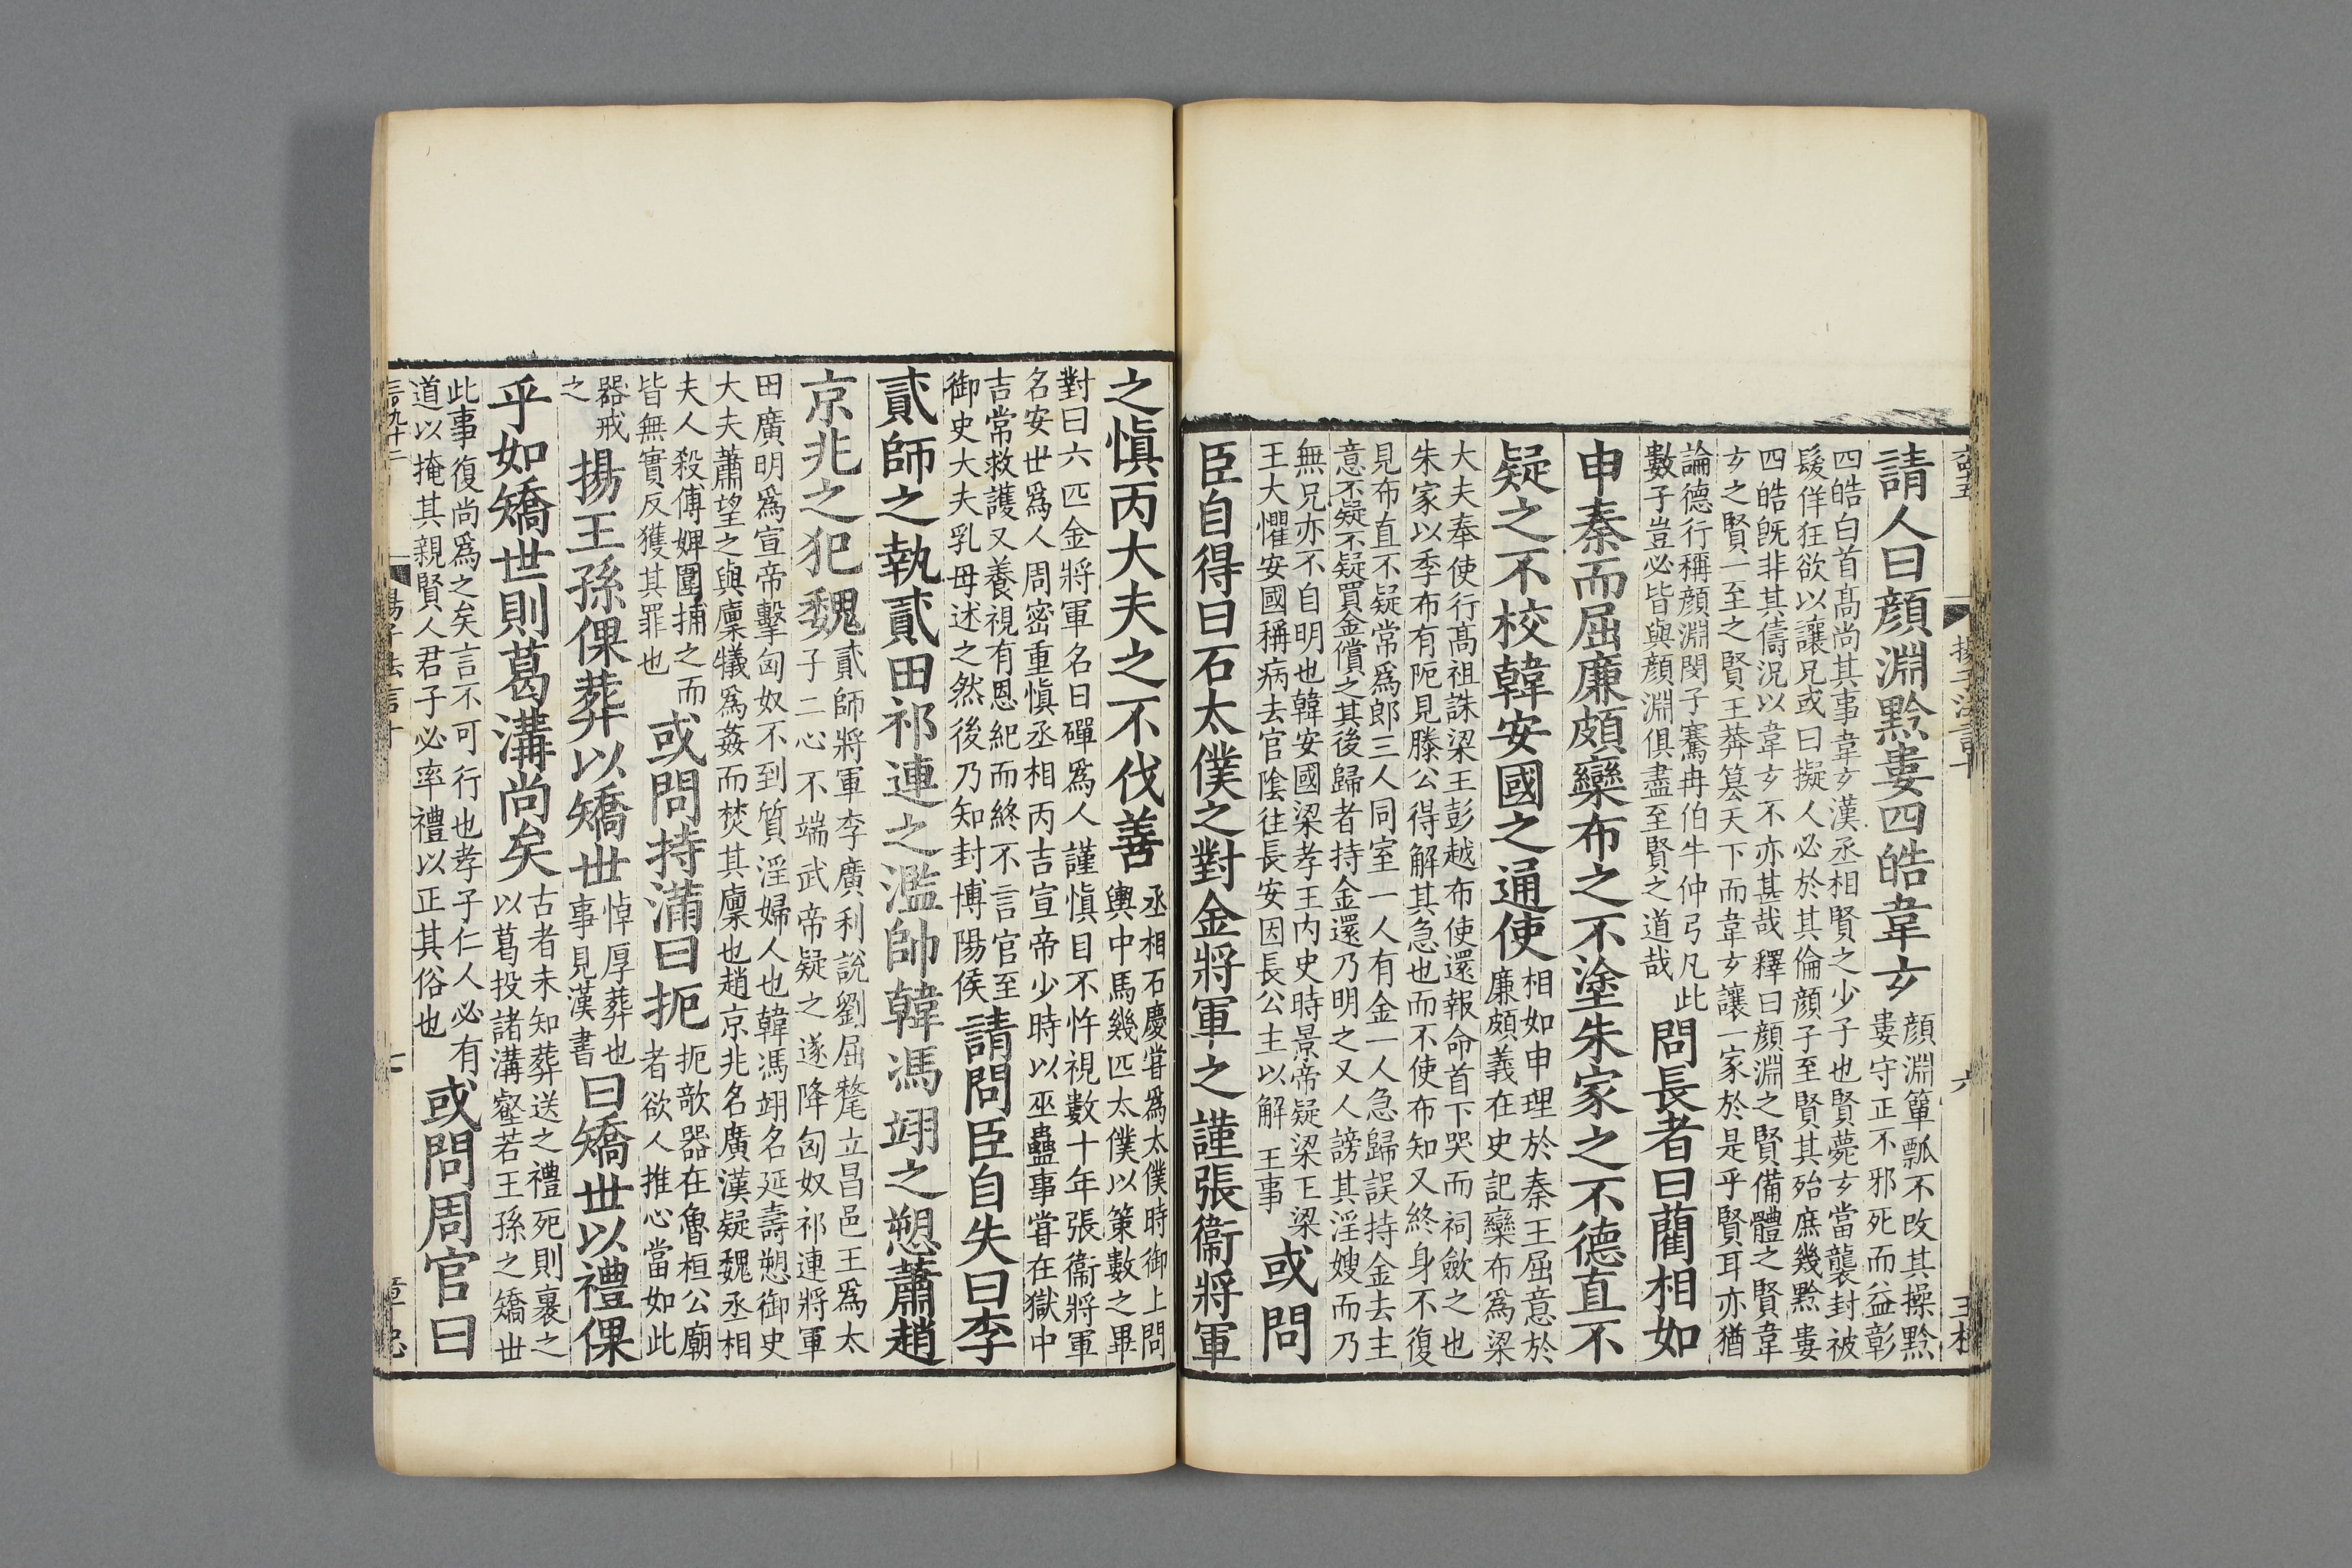 請人曰顔淵黔婁四皓韋玄
顔淵簞瓢不改其操黔
婁守正不邪死而益彰
四皓白首髙尚其事韋玄漢丞相賢之少子也賢薨玄當襲封被
髮佯狂欲以讓兄或曰擬人必於其倫顔子至賢其殆庶幾黔婁
四皓旣非其儔況以韋玄不亦甚哉釋曰顔淵之賢備體之賢韋
玄之賢一至之賢王莽篡天下而韋玄讓一家於是乎賢耳亦猶
論德行稱顔淵閔子騫冉伯牛仲弓凡此
數子豈必皆與顔淵俱盡至賢之道哉
問長者曰藺相如
申秦而屈廉頗欒布之不塗朱家之不德直不
疑之不校韓安國之通使
相如申理於秦王屈意於
廉頗義在史記欒布爲梁
大夫奉使行髙祖誅梁王彭越布使還報命首下哭而祠歛之也
朱家以季布有阨見滕公得解其急也而不使布知又終身不復
見布直不疑常爲郎三人同室一人有金一人急歸誤持金去主
意不疑不疑買金償之其後歸者持金還乃明之又人謗其淫嫂而乃
無兄亦不自明也韓安國梁孝王内史時景帝疑梁王梁
王大懼安國稱病去官陰往長安因長公主以解王事
或問
臣自得曰石太僕之對金將軍之謹張衞將軍
之愼丙大夫之不伐善
丞相石慶嘗爲太僕時御上問
輿中馬幾匹太僕以策數之畢
對曰六匹金將軍名日磾爲人謹愼目不忤視數十年張衞將軍
名安世爲人周密重愼丞相丙吉宣帝少時以巫蠱事嘗在獄中
吉常救護又養視有恩紀而終不言官至
御史大夫乳母述之然後乃知封博陽侯
請問臣自失曰李
貳師之執貳田祁連之濫帥韓馮翊之愬蕭趙
京兆之犯魏
貳師將軍李廣利說劉屈氂立昌邑王爲太
子二心不端武帝疑之遂降匈奴祁連將軍
田廣明爲宣帝擊匈奴不到質淫婦人也韓馮翊名延壽愬御史
大夫蕭望之與廩犧爲姦而焚其廩也趙京兆名廣漢疑魏丞相
夫人殺傅婢圍捕之而
皆無實反獲其罪也
或問持滿曰扼
扼欹器在魯桓公廟
者欲人推心當如此
器戒
之
揚王孫倮葬以矯世
悼厚葬也
事見漢書
曰矯世以禮倮
乎如矯世則葛溝尚矣
古者未知葬送之禮死則裹之
以葛投諸溝壑若王孫之矯世
此事復尚爲之矣言不可行也孝子仁人必有
道以掩其親賢人君子必率禮以正其俗也
或問周官曰